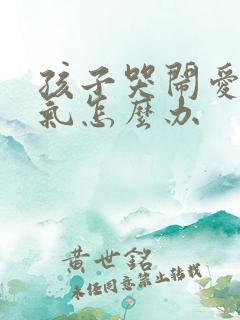 孩子哭鬧愛
氣怎麼办
黃世銘
未经同意禁止转载